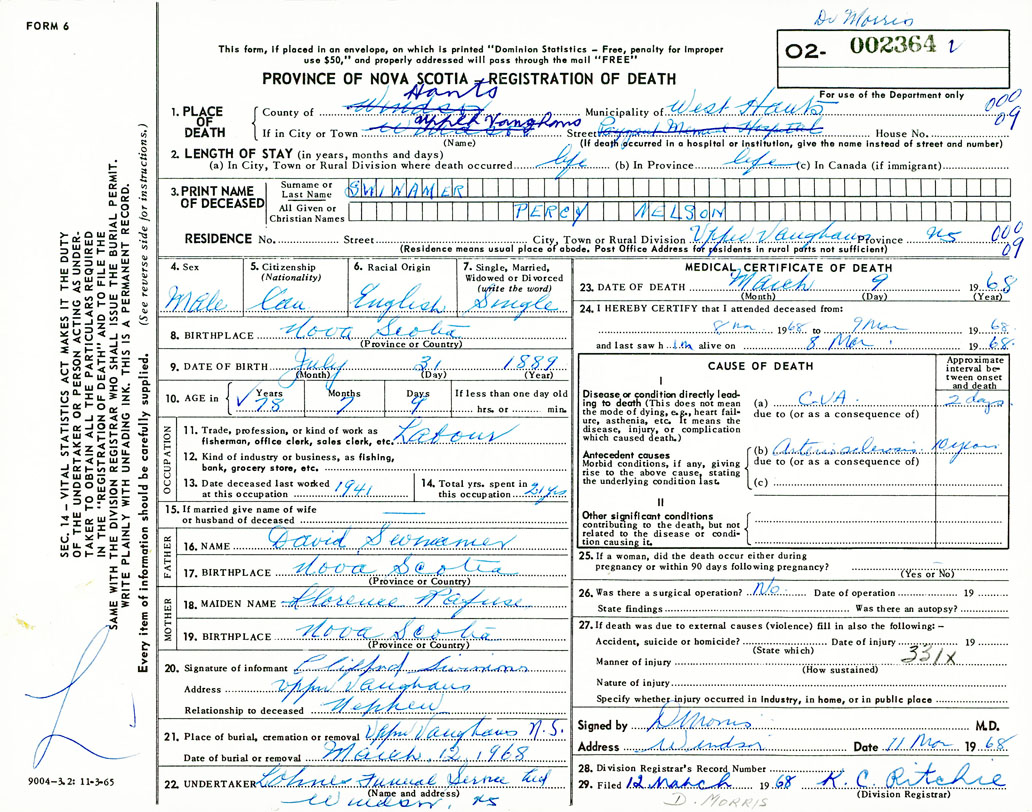 FORM 6
Dr Morris
This form, if placed in an envelope, on which is printed "Dominion Statistics - Free, penalty for improper
use $50," and properly addressed will pass through the mail "FREE"
O2- 002364
PROVINCE OF NOVA SCOTIA - REGISTRATION OF DEATH
For use of the Department only
000
09
1. PLACE OF DEATH
County of Windsor Hants Municipality of West Hants
If in City or Town Windsor Upper Vaughans Street Payzant Memorial Hospital House No.
(Name) (If death occurred in a hospital or institution, give the name instead of street and number)
2. LENGTH OF STAY (in years, months and days)
(a) In City, Town or Rural Division where death occurred life (b) In Province life (c) In Canada (if immigrant)
3. PRINT NAME OF DECEASED
Surname or Last Name SWINAMER
All Given or Christian Names PERCY NELSON
RESIDENCE No. Street City, Town or Rural Division Upper Vaughans Province NS
000
09
(Residence means usual place of abode. Post Office Address for residents in rural parts not sufficient)
4. Sex Male
5. Citizenship (Nationality) Can
6. Racial Origin English
7. Single, Married, Widowed or Divorced (write the word) Single
8. BIRTHPLACE Nova Scotia
(Province or Country)
9. DATE OF BIRTH July 31 1889
(Month) (Day) (Year)
10. AGE in Years 78 Months 7 Days 9 If less than one day old
hrs. or min.
OCCUPATION
11. Trade, profession, or kind of work as fisherman, office clerk, sales clerk, etc. Labour
12. Kind of industry or business, as fishing, bank, grocery store, etc.
13. Date deceased last worked at this occupation 1941
14. Total yrs. spent in this occupation 21 yrs
15. If married give name of wife or husband of deceased
FATHER
16. NAME David Swinamer
17. BIRTHPLACE Nova Scotia
(Province or Country)
MOTHER
18. MAIDEN NAME Florence Rafuse
19. BIRTHPLACE Nova Scotia
(Province or Country)
20. Signature of informant Clifford Simmons
Address Upper Vaughans
Relationship to deceased Nephew
21. Place of burial, cremation or removal Upper Vaughans N.S.
Date of burial or removal March 12, 1968
22. UNDERTAKER Lohnes Funeral Service Ltd
(Name and address)
Windsor, NS
MEDICAL CERTIFICATE OF DEATH
23. DATE OF DEATH March 9 1968
(Month) (Day) (Year)
24. I HEREBY CERTIFY that I attended deceased from:
8 Mar 1968 to 9 Mar 1968
and last saw him alive on 8 Mar. 1968.
CAUSE OF DEATH
Approximate interval between onset and death
I
Disease or condition directly leading to death (This does not mean the mode of dying, e.g., heart failure, asthenia, etc. It means the disease, injury, or complication which caused death.)
(a) C-VA 2 days
due to (or as a consequence of)
Antecedent causes
Morbid conditions, if any, giving rise to the above cause, stating the underlying condition last.
(b) Arteriosclerosis 10 years
due to (or as a consequence of)
(c)
II
Other significant conditions
contributing to the death, but not related to the disease or condition causing it.
25. If a woman, did the death occur either during
pregnancy or within 90 days following pregnancy?
(Yes or No)
26. Was there a surgical operation? No. Date of operation 19
State findings Was there an autopsy?
27. If death was due to external causes (violence) fill in also the following: -
Accident, suicide or homicide? Date of injury 19
(State which)
331X
Manner of injury
(How sustained)
Nature of injury
Specify whether injury occurred in Industry, in home, or in public place
Signed by D Morris M.D.
Address Windsor Date 11 Mar 1968
28. Division Registrar's Record Number
29. Filed 12 March 1968 K. C. Ritchie
(Division Registrar)
D. MORRIS
SEC. 14 - VITAL STATISTICS ACT MAKES IT THE DUTY
OF THE UNDERTAKER OR PERSON ACTING AS UNDER-
TAKER TO OBTAIN ALL THE PARTICULARS REQUIRED
IN THE "REGISTRATION OF DEATH" AND TO FILE THE
SAME WITH THE DIVISION REGISTRAR WHO SHALL ISSUE THE BURIAL PERMIT.
WRITE PLAINLY WITH UNFADING INK. THIS IS A PERMANENT RECORD.
Every item of information should be carefully supplied. (See reverse side for instructions.)
9004-3.2: 11-3-65